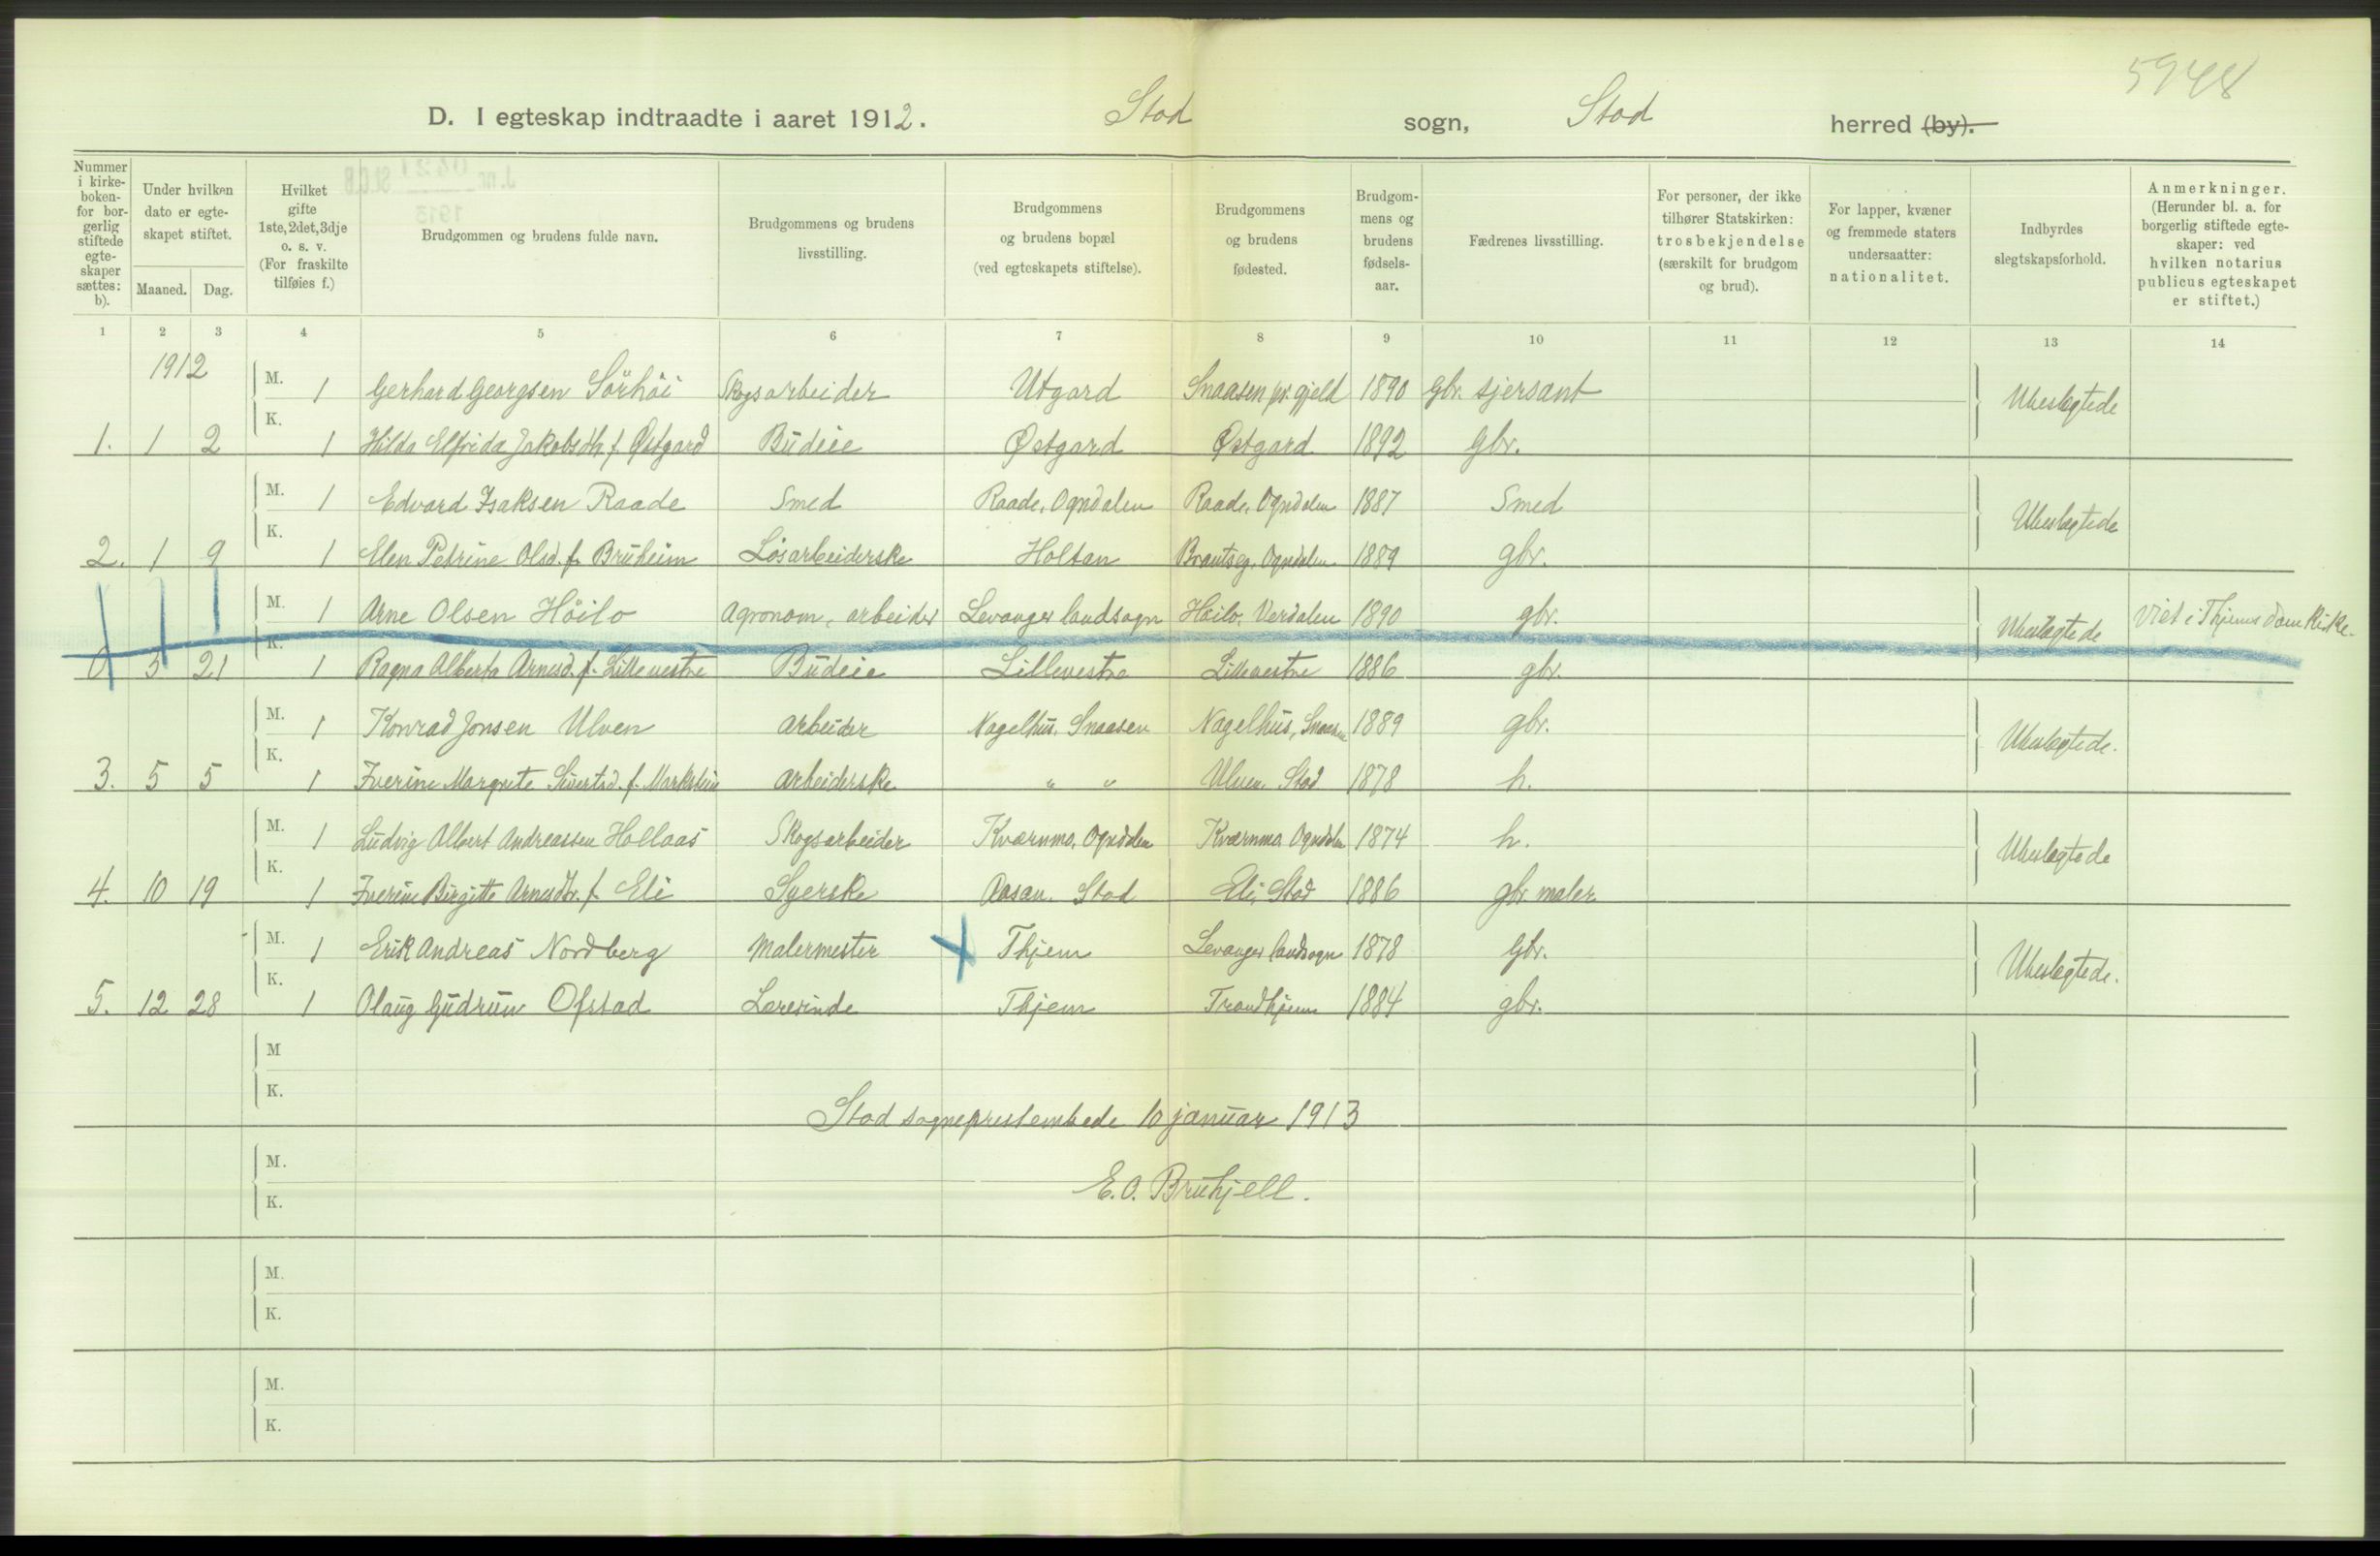 5948
D. I egteskap indtraadte i aaret 1912. Stod sogn, Stod herred (by).
Nummer i kirkeboken- for borgerlig stiftede egteskaper sættes: b).
Under hvilken dato er egteskapet stiftet.
Maaned. Dag.
Hvilket gifte 1ste, 2det, 3dje o. s. v. (For fraskilte tilføies f.)
Brudgommen og brudens fulde navn.
Brudgommens og brudens livsstilling.
Brudgommens og brudens bopæl (ved egteskapets stiftelse).
Brudgommens og brudens fødested.
Brudgommens og brudens fødselsaar.
Fædrenes livsstilling.
For personer, der ikke tilhører Statskirken: trosbekjendelse (særskilt for brudgom og brud).
For lapper, kvæner og fremmede staters undersaatter: nationalitet.
Indbyrdes slegtskapsforhold.
Anmerkninger. (Herunder bl. a. for borgerlig stiftede egteskaper: ved hvilken notarius publicus egteskapet er stiftet.)
1 2 3 4 5 6 7 8 9 10 11 12 13 14
1912
M. 1 Gerhard Georgsen Sörhöi Skogsarbeider Utgard Snaasen pr.gjeld 1890 Gbr. sjersant Ubeslegtede
K.
1. 1 2 1 Hilda Elfrida Jakobsdtr. f. Østgard Budeie Østgard Østgard 1892 Gbr.
M. 1 Edvard Isaksen Raade Smed Raade, Ogndalen Raade, Ogndalen 1887 Smed Ubeslegtede
K.
2. 1 9 1 Elen Petrine Olsd. f. Bruheim Lösarbeiderske Holtan Brautseg, Ogndalen 1889 gbr.
M. 1 Arne Olsen Höilo Agronom, arbeider Levanger landsogn Höilo, Verdalen 1890 gbr. Ubeslegtede Viet i Thjems Domkirke.
K.
0 3 21 1 Ragna Alberta Arnesd. f. Lillevestre Budeie Lillevestre Lillevestre 1886 gbr.
M. 1 Konrad Jonsen Ulven arbeider Nagelhus, Snaasen Nagelhus, Snaasen 1889 gbr. Ubeslegtede.
K.
3. 5 5 1 Iverine Margrete Sivertsd. f. arbeiderske " " Ulven, Stod 1878 h.
M. 1 Ludvig Albert Andreassen Hollaas Skogsarbeider Kværnmo, Ogndalen Kværnmo, Ogndalen 1874 h. Ubeslegtede
K.
4. 10 19 1 Iverine Birgitte Arnesdtr. f. Eli Syerske Aasan, Stod Eli, Stod 1886 gbr. maler
M. 1 Erik Andreas Nordberg Malermester Thjem Levanger landsogn 1878 Gbr. Ubeslegtede.
K.
5. 12 28 1 Olaug Gudrun Ofstad Lærerinde Thjem Trondhjem 1884 gbr.
M
K.
Stod sogneprestembede 10 januar 1913
M.
E. O. Bruhjell.
K.
M.
K.
M.
K.